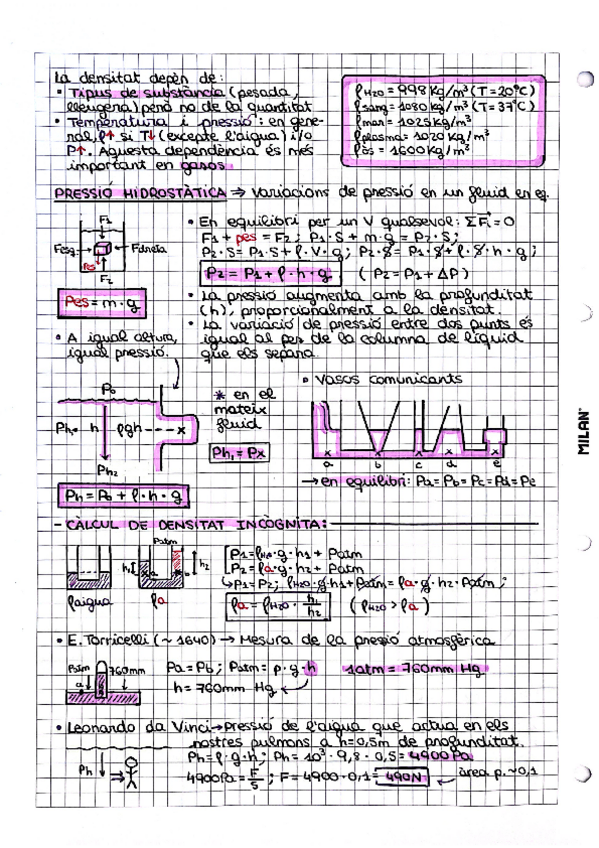 La densitat depèn de:
• Tipus de substància (pesada,
lleugera) però no de la quantitat
• Temperatura i pressió: en gene-
ral, ρ↑ si T↓ (excepte l'aigua) i/o
P↑. Aquesta dependència és més
important en gasos
ρH2O = 998 Kg/m³ (T=20ºC)
ρsang = 1080 Kg/m³ (T=37ºC)
ρmar = 1025 Kg/m³
ρplasma = 1020 Kg/m³
ρòs = 1600 Kg/m³
PRESSIÓ HIDROSTÀTICA ⇒ Variacions de pressió en un fluid en eq.
F1
Fesq
Fdreta
Pes
F2
Pes = m·g
• En equilibri per un V qualsevol: ΣF⃗i = 0
F1 + pes = F2 ; P1·S + m·g = P2·S ;
P2·S = P1·S + ρ·V·g ; P2·S = P1·S + ρ·S·h·g ;
P2 = P1 + ρ·h·g ( P2 = P1 + ΔP )
• La pressió augmenta amb la profunditat
(h), proporcionalment a la densitat.
• La variació de pressió entre dos punts és
igual al pes de la columna de líquid
que els separa.
• A igual altura,
igual pressió.
P0
Ph1 h ρgh x
Ph2
* en el
mateix
fluid
Ph1 = Px
Ph = P0 + ρ·h·g
• Vasos comunicants
x x x x x
a b c d e
→ en equilibri: Pa = Pb = Pc = Pd = Pe
- CÀLCUL DE DENSITAT INCÒGNITA:
Patm
h1 a b h2
ρaigua ρa
P1 = ρH2O·g·h1 + Patm
P2 = ρa·g·h2 + Patm
↳ P1 = P2 ; ρH2O·g·h1 + Patm = ρa·g·h2·Patm ;
ρa = ρH2O · h1/h2 ( ρH2O > ρa )
• E. Torricelli (~1640) → Mesura de la pressió atmosfèrica
Patm 760mm
a b
Pa = Pb ; Patm = ρ·g·h 1atm = 760mm Hg
h = 760mm Hg
• Leonardo da Vinci → Pressió de l'aigua que actua en els
nostres pulmons a h=0,5m de profunditat.
Ph
Ph = ρ·g·h ; Ph = 10³·9,8·0,5 = 4900 Pa
4900 Pa = F/S ; F = 4900·0,1 = 490N àrea p. ~0,1
MILAN